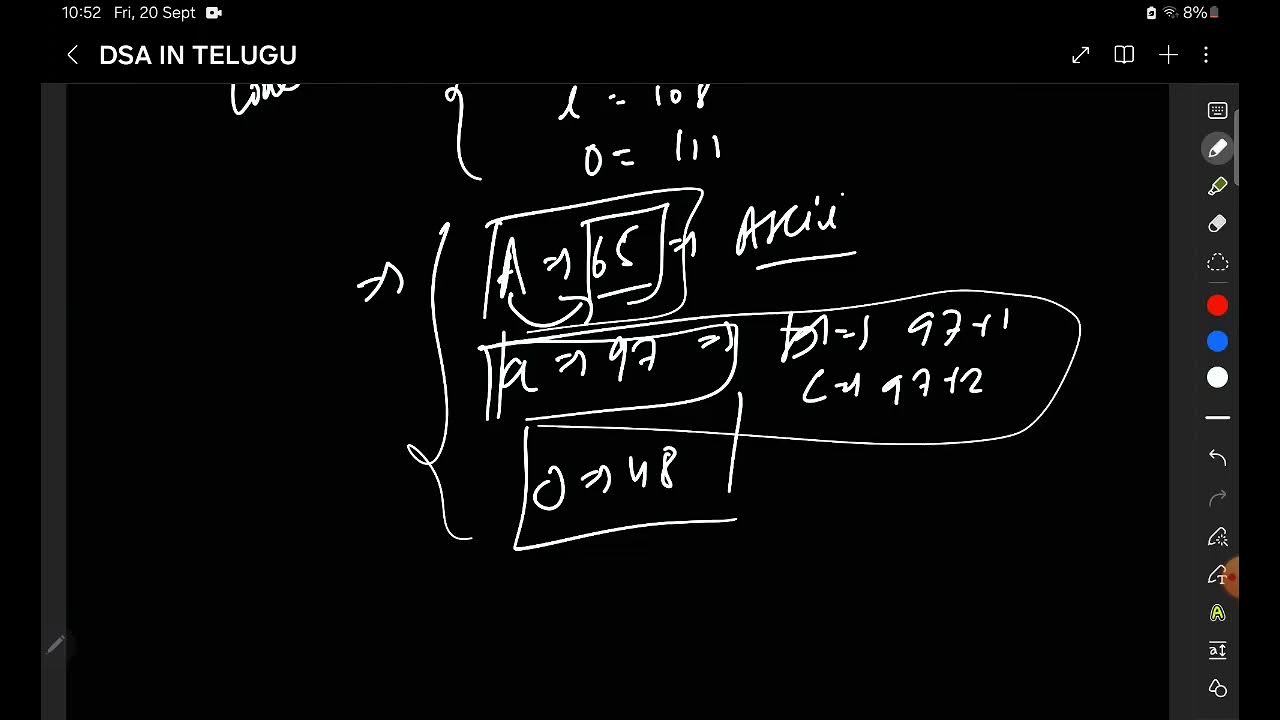 10:52 Fri, 20 Sept 8%
DSA IN TELUGU
l = 108
o = 111
A => 65 => Ascii
a => 97 => b => 97+1
c => 97+2
0 => 48